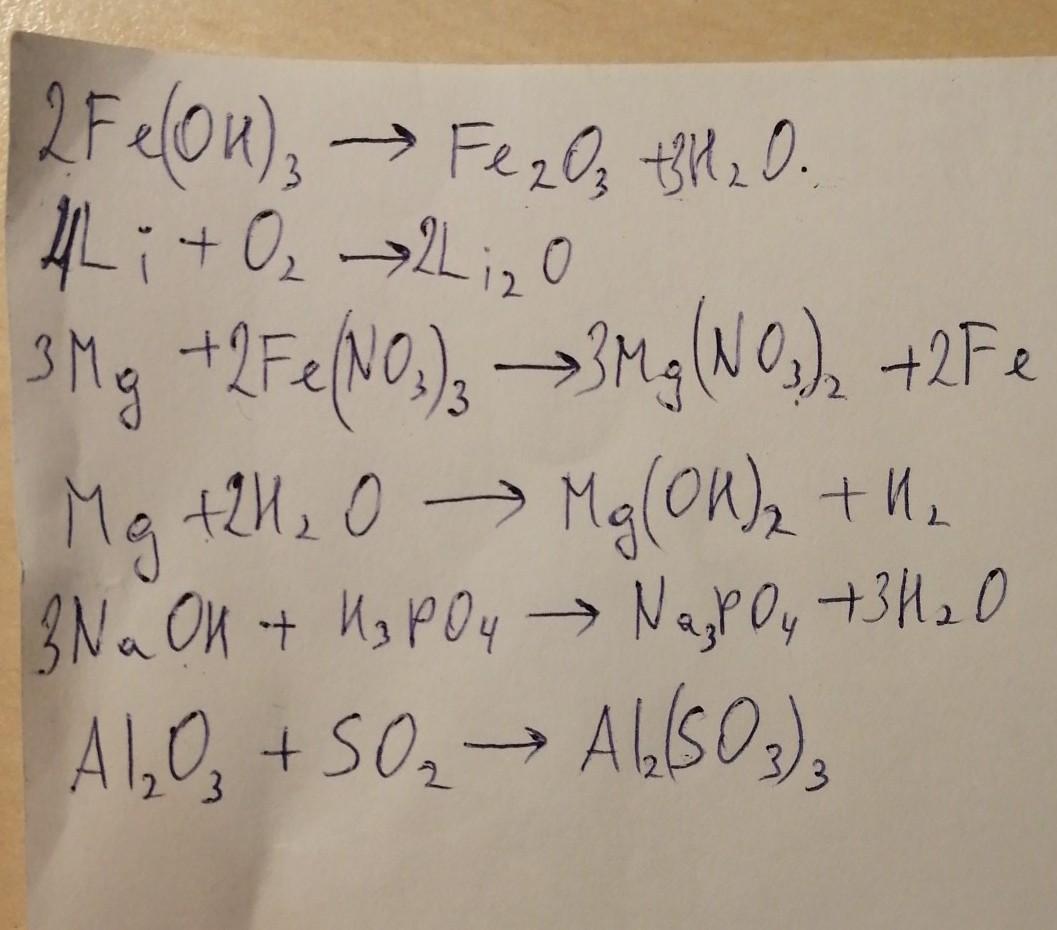 2Fe(OH)₃ → Fe₂O₃ +3H₂O.
4Li + O₂ → 2Li₂O
3Mg +2Fe(NO₃)₃ → 3Mg(NO₃)₂ +2Fe
Mg +2H₂O → Mg(OH)₂ + H₂
3NaOH + H₃PO₄ → Na₃PO₄ +3H₂O
Al₂O₃ + SO₂ → Al₂(SO₃)₃